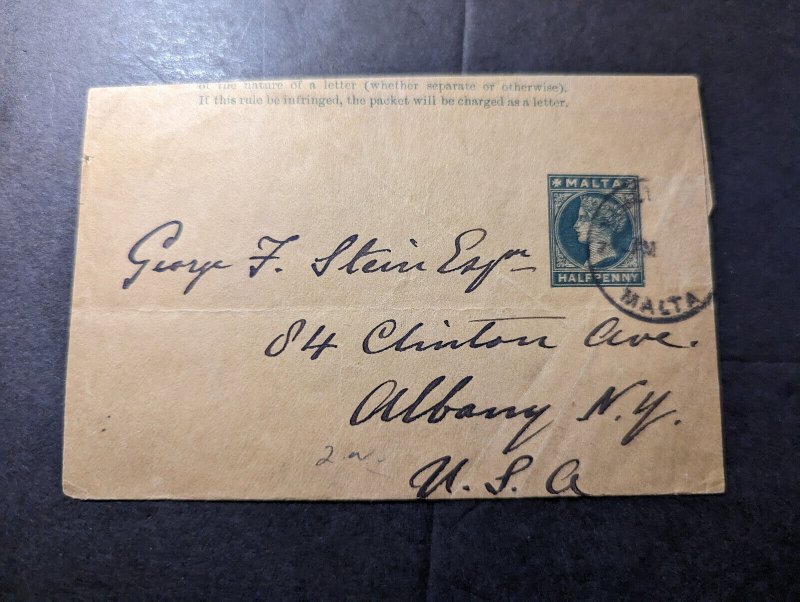 of the nature of a letter (whether separate or otherwise).
If this rule be infringed, the packet will be charged as a letter.
MALTA
HALFPENNY
MALTA
George F. Stein Esqre
84 Clinton Ave.
Albany N.Y.
U.S.A